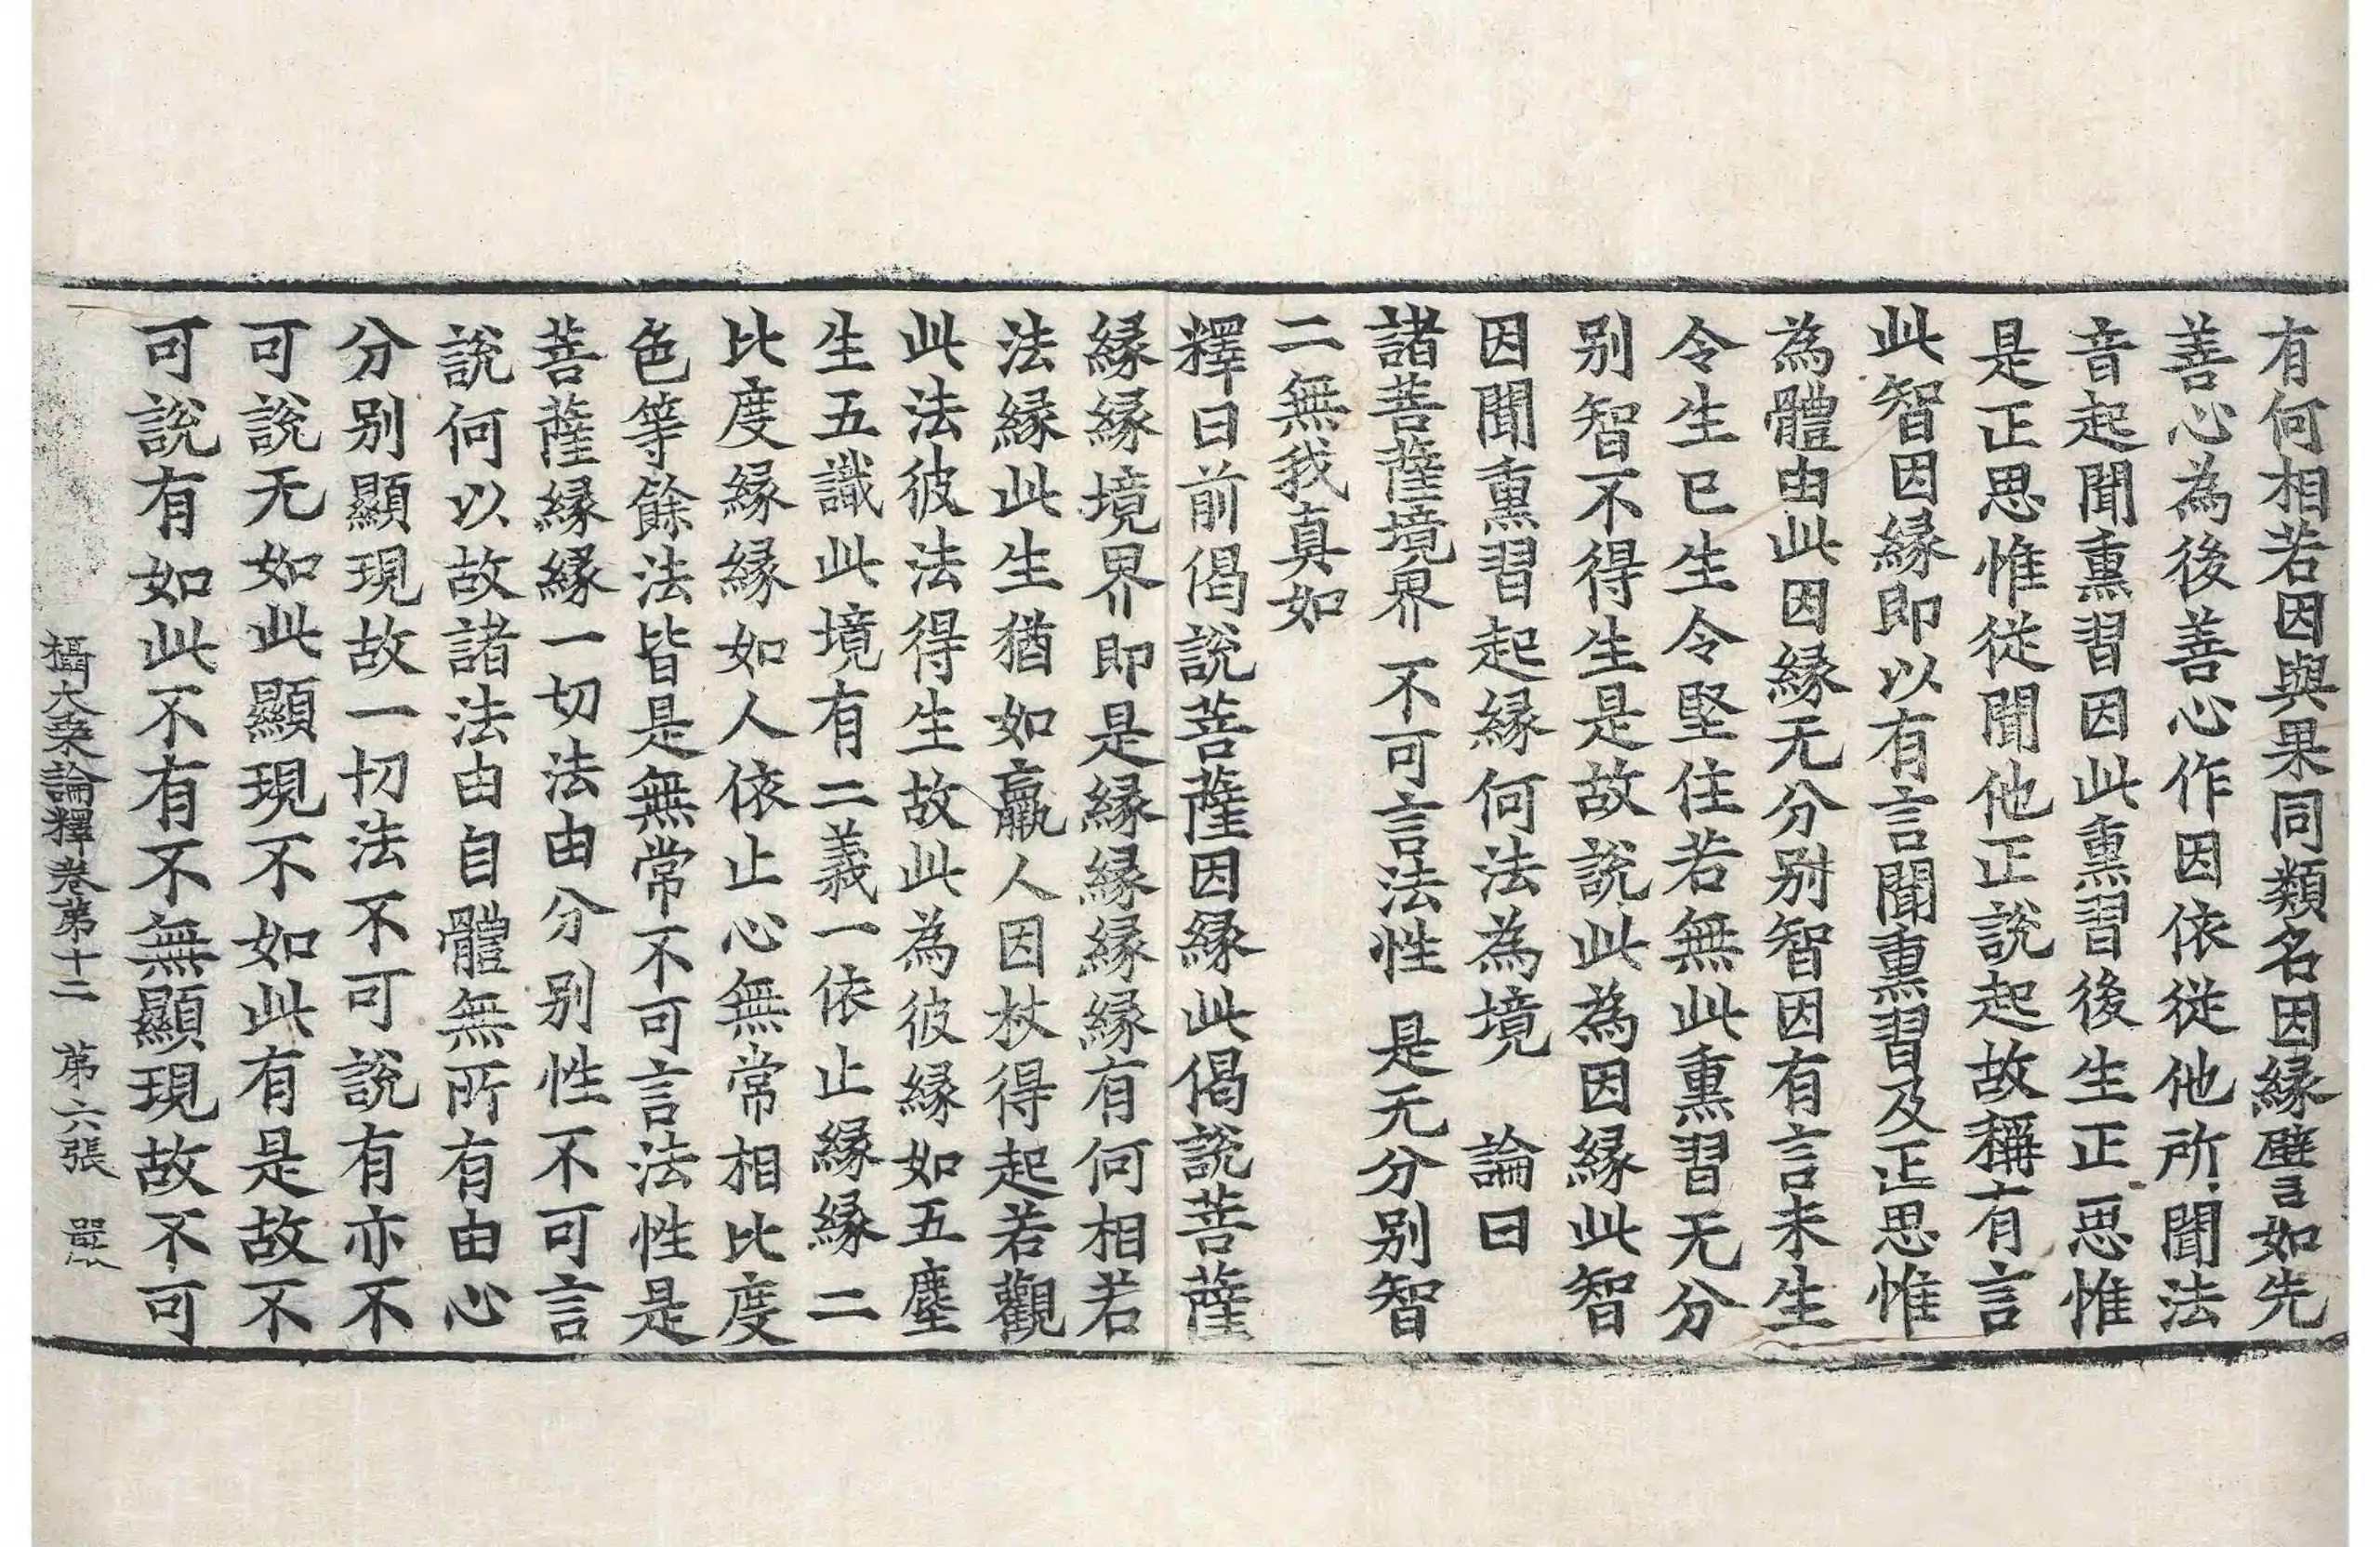 有何相若因與果同類名因縁譬如先
善心為後善心作因依從他所聞法
音起聞熏習因此熏習後生正思惟
是正思惟從聞他正說起故稱有言
此智因縁即以有言聞熏習及正思惟
為體由此因縁无分別智因有言未生
令生已生令堅住若無此熏習无分
別智不得生是故說此為因縁此智
因聞熏習起縁何法為境　論曰
諸菩薩境界　不可言法性　是无分別智
二無我真如
釋曰前偈說菩薩因縁此偈說菩薩
縁縁境界即是縁縁縁縁有何相若
法縁此生猶如羸人因杖得起若觀
此法彼法得生故此為彼縁如五塵
生五識此境有二義一依止縁縁二
比度縁縁如人依止心無常相比度
色等餘法皆是無常不可言法性是
菩薩縁縁一切法由分別性不可言
說何以故諸法由自體無所有由心
分別顯現故一切法不可說有亦不
可說无如此顯現不如此有是故不
可說有如此不有不無顯現故不可
攝大乗論釋卷第十二　第六張